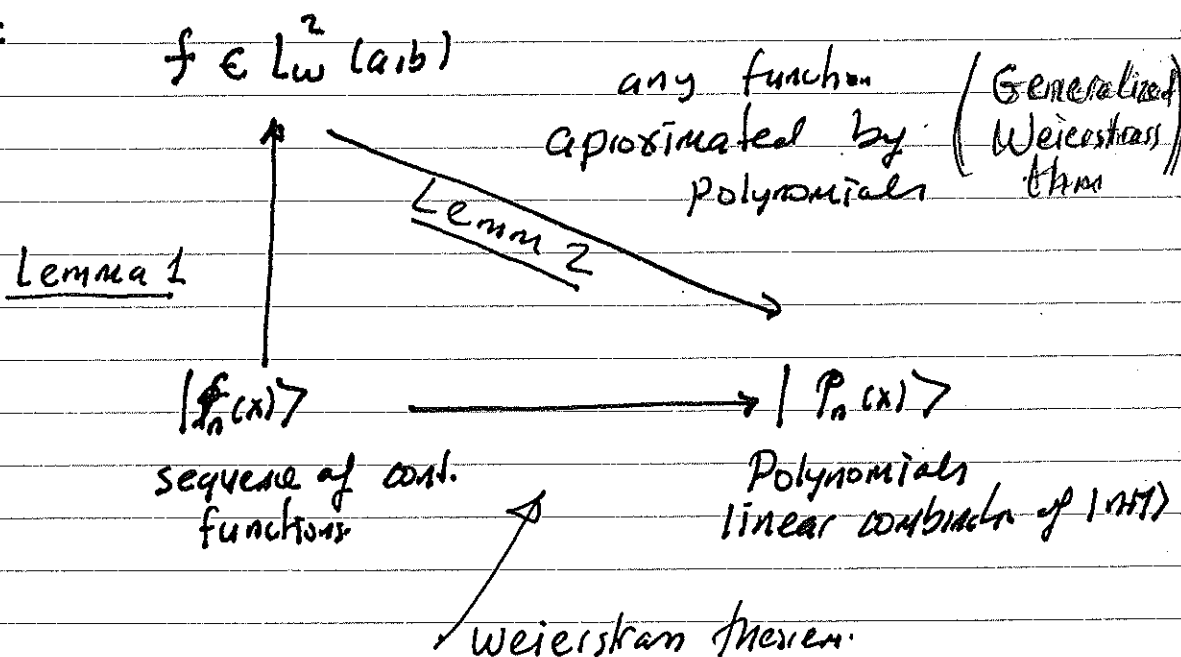 f ∈ L²_w (a,b)
any function
aproximated by
polynomials
(Generalized
Weierstrass
thm)
Lemm 2
Lemma 1
|f_n(x)>
|P_n(x)>
sequence of cont.
functions.
Polynomials
linear combinatn of
Weierstrass theorem.